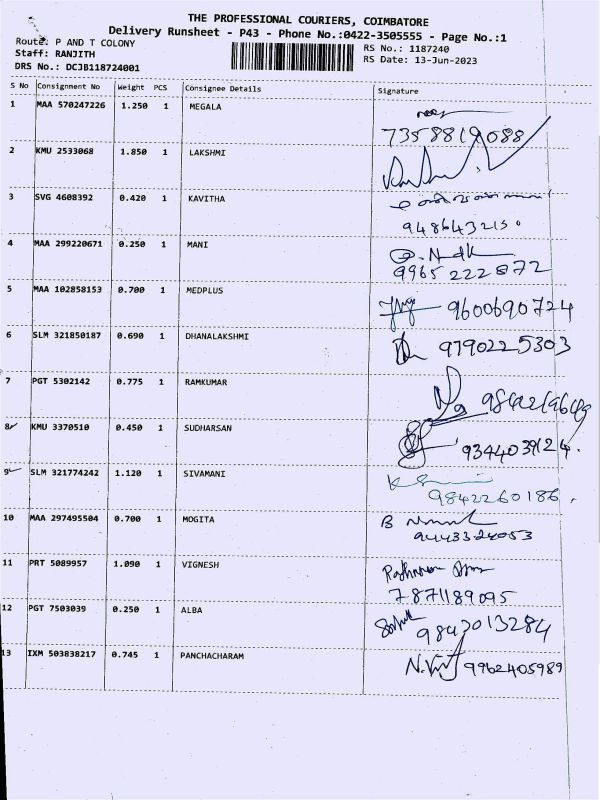 THE PROFESSIONAL COURIERS, COIMBATORE
Delivery Runsheet - P43 - Phone No.:0422-3505555 - Page No.:1
Route: P AND T COLONY
RS No.: 1187240
Staff: RANJITH
RS Date: 13-Jun-2023
DRS No.: DCJB118724001
S No Consignment No Weight PCS Consignee Details Signature
1 MAA 570247226 1.250 1 MEGALA
7358819088
2 KMU 2533068 1.850 1 LAKSHMI
3 SVG 4608392 0.420 1 KAVITHA
9486432150
4 MAA 299220671 0.250 1 MANI
9965222872
5 MAA 102858153 0.700 1 MEDPLUS 9600690724
6 SLM 321850187 0.690 1 DHANALAKSHMI 9790225303
7 PGT 5302142 0.775 1 RAMKUMAR
8 KMU 3370510 0.450 1 SUDHARSAN 9344039124.
9 SLM 321774242 1.120 1 SIVAMANI
9842260186.
10 MAA 297495504 0.700 1 MOGITA B
9443324053
11 PRT 5089957 1.090 1 VIGNESH
7871189095
12 PGT 7503039 0.250 1 ALBA 9843013284
13 IXM 503838217 0.745 1 PANCHACHARAM 9962405989